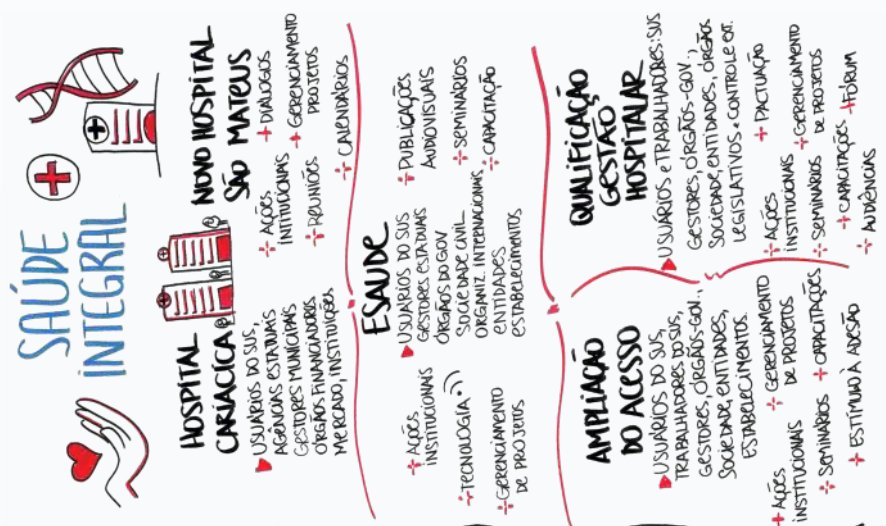 SAÚDE
INTEGRAL
HOSPITAL
CARIACICA
USUÁRIOS DO SUS,
AGÊNCIAS ESTATUAIS
GESTORES MUNICIPAIS
ÓRGÃOS FINANCIADORES
MERCADO, INSTITUIÇÕES
NOVO HOSPITAL
SÃO MATEUS
+ AÇÕES
INTITUCIONAIS
+ REUNIÕES
+ DIÁLOGOS
+ GERENCIAMENTO
PROJETOS
+ CALENDÁRIOS
ESAUDE
USUÁRIOS DO SUS
GESTORES ESTADUAIS
ÓRGÃOS DO GOV
SOCIEDADE CIVIL
ORGANIZ. INTERNACIONAIS
ENTIDADES
ESTABELECIMENTOS
+ AÇÕES
INSTITUCIONAIS
+ TECNOLOGIA
+ GERENCIAMENTO
DE PROJETOS
+ PUBLICAÇÕES
AUDIOVISUAIS
+ SEMINÁRIOS
+ CAPACITAÇÃO
AMPLIAÇÃO
DO ACESSO
USUÁRIOS DO SUS,
TRABALHADORES DO SUS,
GESTORES, ÓRGÃOS-GOV.,
SOCIEDADE, ENTIDADES,
ESTABELECIMENTOS.
+ AÇÕES
INSTITUCIONAIS
+ SEMINÁRIOS
+ ESTÍMULO À ADESÃO
+ GERENCIAMENTO
DE PROJETOS
+ CAPACITAÇÕES
QUALIFICAÇÃO
GESTÃO
HOSPITALAR
USUÁRIOS e TRABALHADORES: SUS
GESTORES, ÓRGÃOS-GOV.,
SOCIEDADE, ENTIDADES, ÓRGÃOS
LEGISLATIVOS + CONTROLE EXT.
+ AÇÕES
INSTITUCIONAIS
+ SEMINÁRIOS
+ CAPACITAÇÕES
+ AUDIÊNCIAS
+ PACTUAÇÃO
+ GERENCIAMENTO
DE PROJETOS
+ FÓRUM